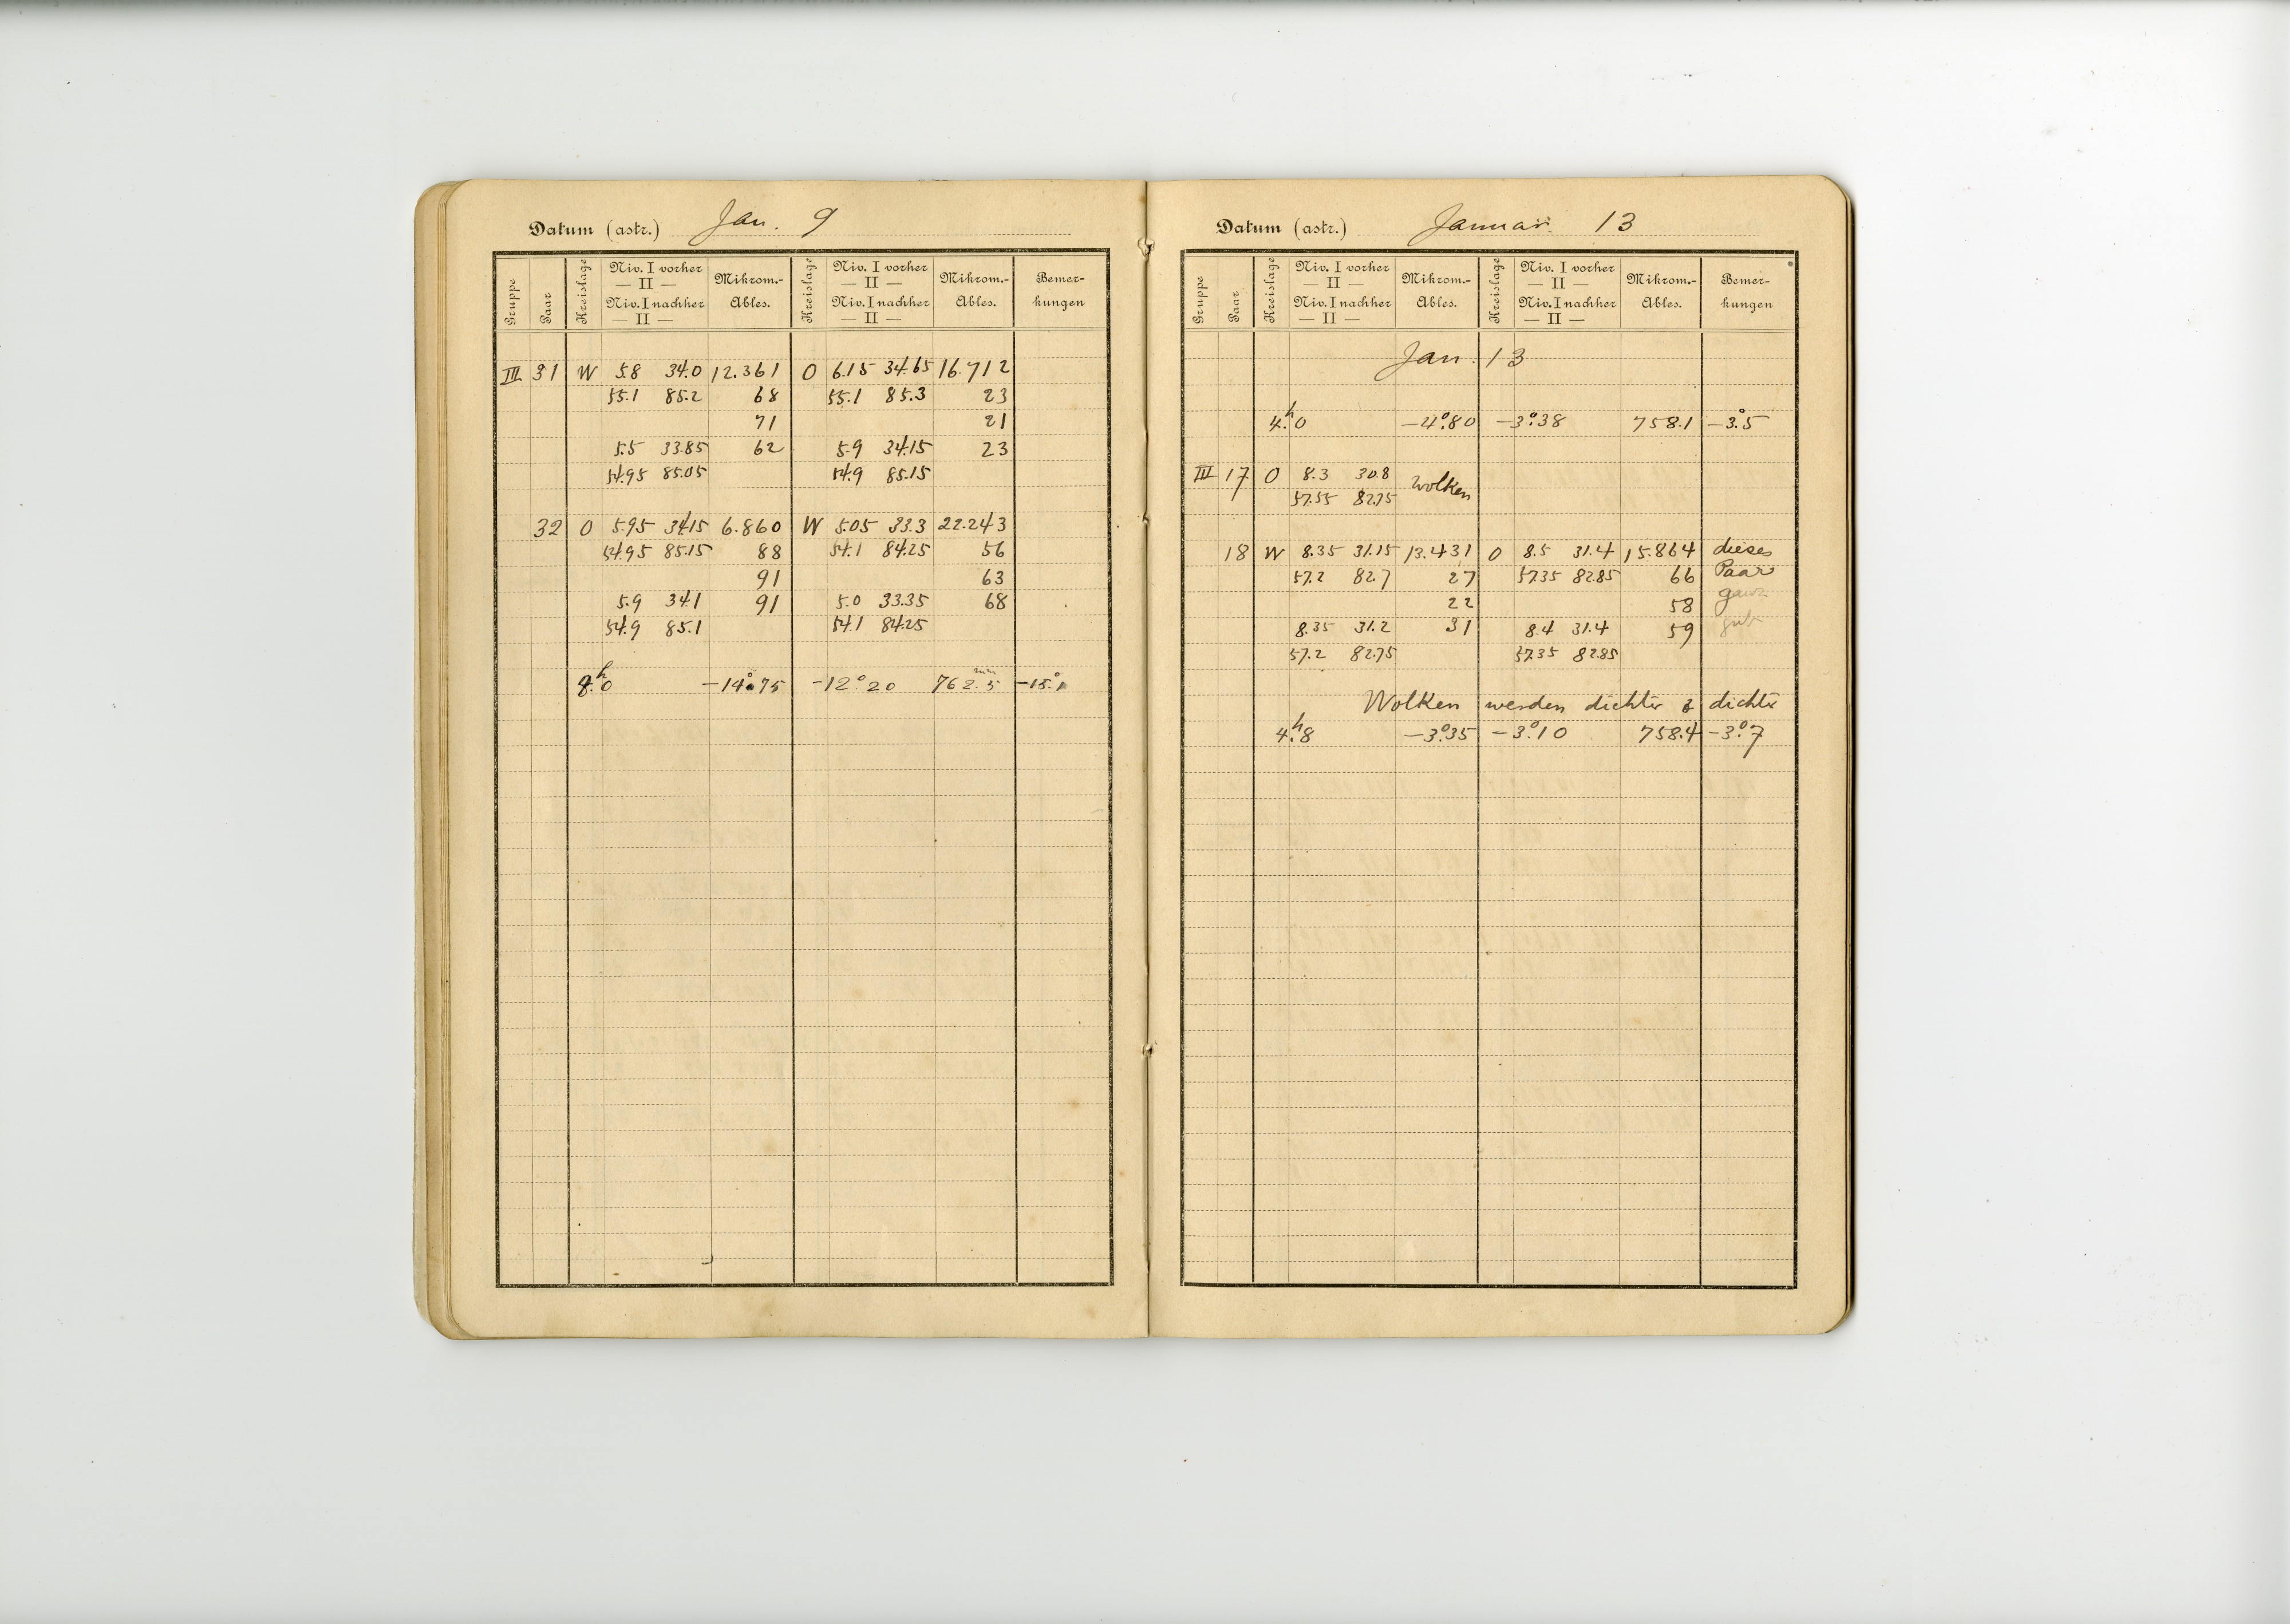 Datum (astr.) Jan. 9
Gruppe Paar Kreislage Niv. I vorher — II — Niv. I nachher — II — Mikrom.-Ables. Kreislage Niv. I vorher — II — Niv. I nachher — II — Mikrom.-Ables. Bemer-kungen
III 31 W 5.8 34.0 12.361 O 6.15 34.65 16.712
55.1 85.2 68 55.1 85.3 23
71 21
5.5 33.85 62 5.9 34.15 23
54.95 85.05 54.9 85.15
32 O 5.95 34.15 6.860 W 5.05 33.3 22.243
54.95 85.15 88 54.1 84.25 56
91 63
5.9 34.1 91 5.0 33.35 68
54.9 85.1 54.1 84.25
8.h0 -14°.75 -12°.20 762.5mm -15°.1
Datum (astr.) Januar 13
Gruppe Paar Kreislage Niv. I vorher — II — Niv. I nachher — II — Mikrom.-Ables. Kreislage Niv. I vorher — II — Niv. I nachher — II — Mikrom.-Ables. Bemer-kungen
Jan. 13
4.h0 -4°.80 -3°.38 758.1 -3°.5
III 17 O 8.3 30.8 Wolken
57.55 82.75
18 W 8.35 31.15 13.431 O 8.5 31.4 15.864 dieses
57.2 82.7 27 57.35 82.85 66 Paar
22 58 ganz
8.35 31.2 31 8.4 31.4 59 gut
57.2 82.75 57.35 82.85
Wolken werden dichter & dichter
4.h8 -3°.35 -3°.10 758.4 -3°.7